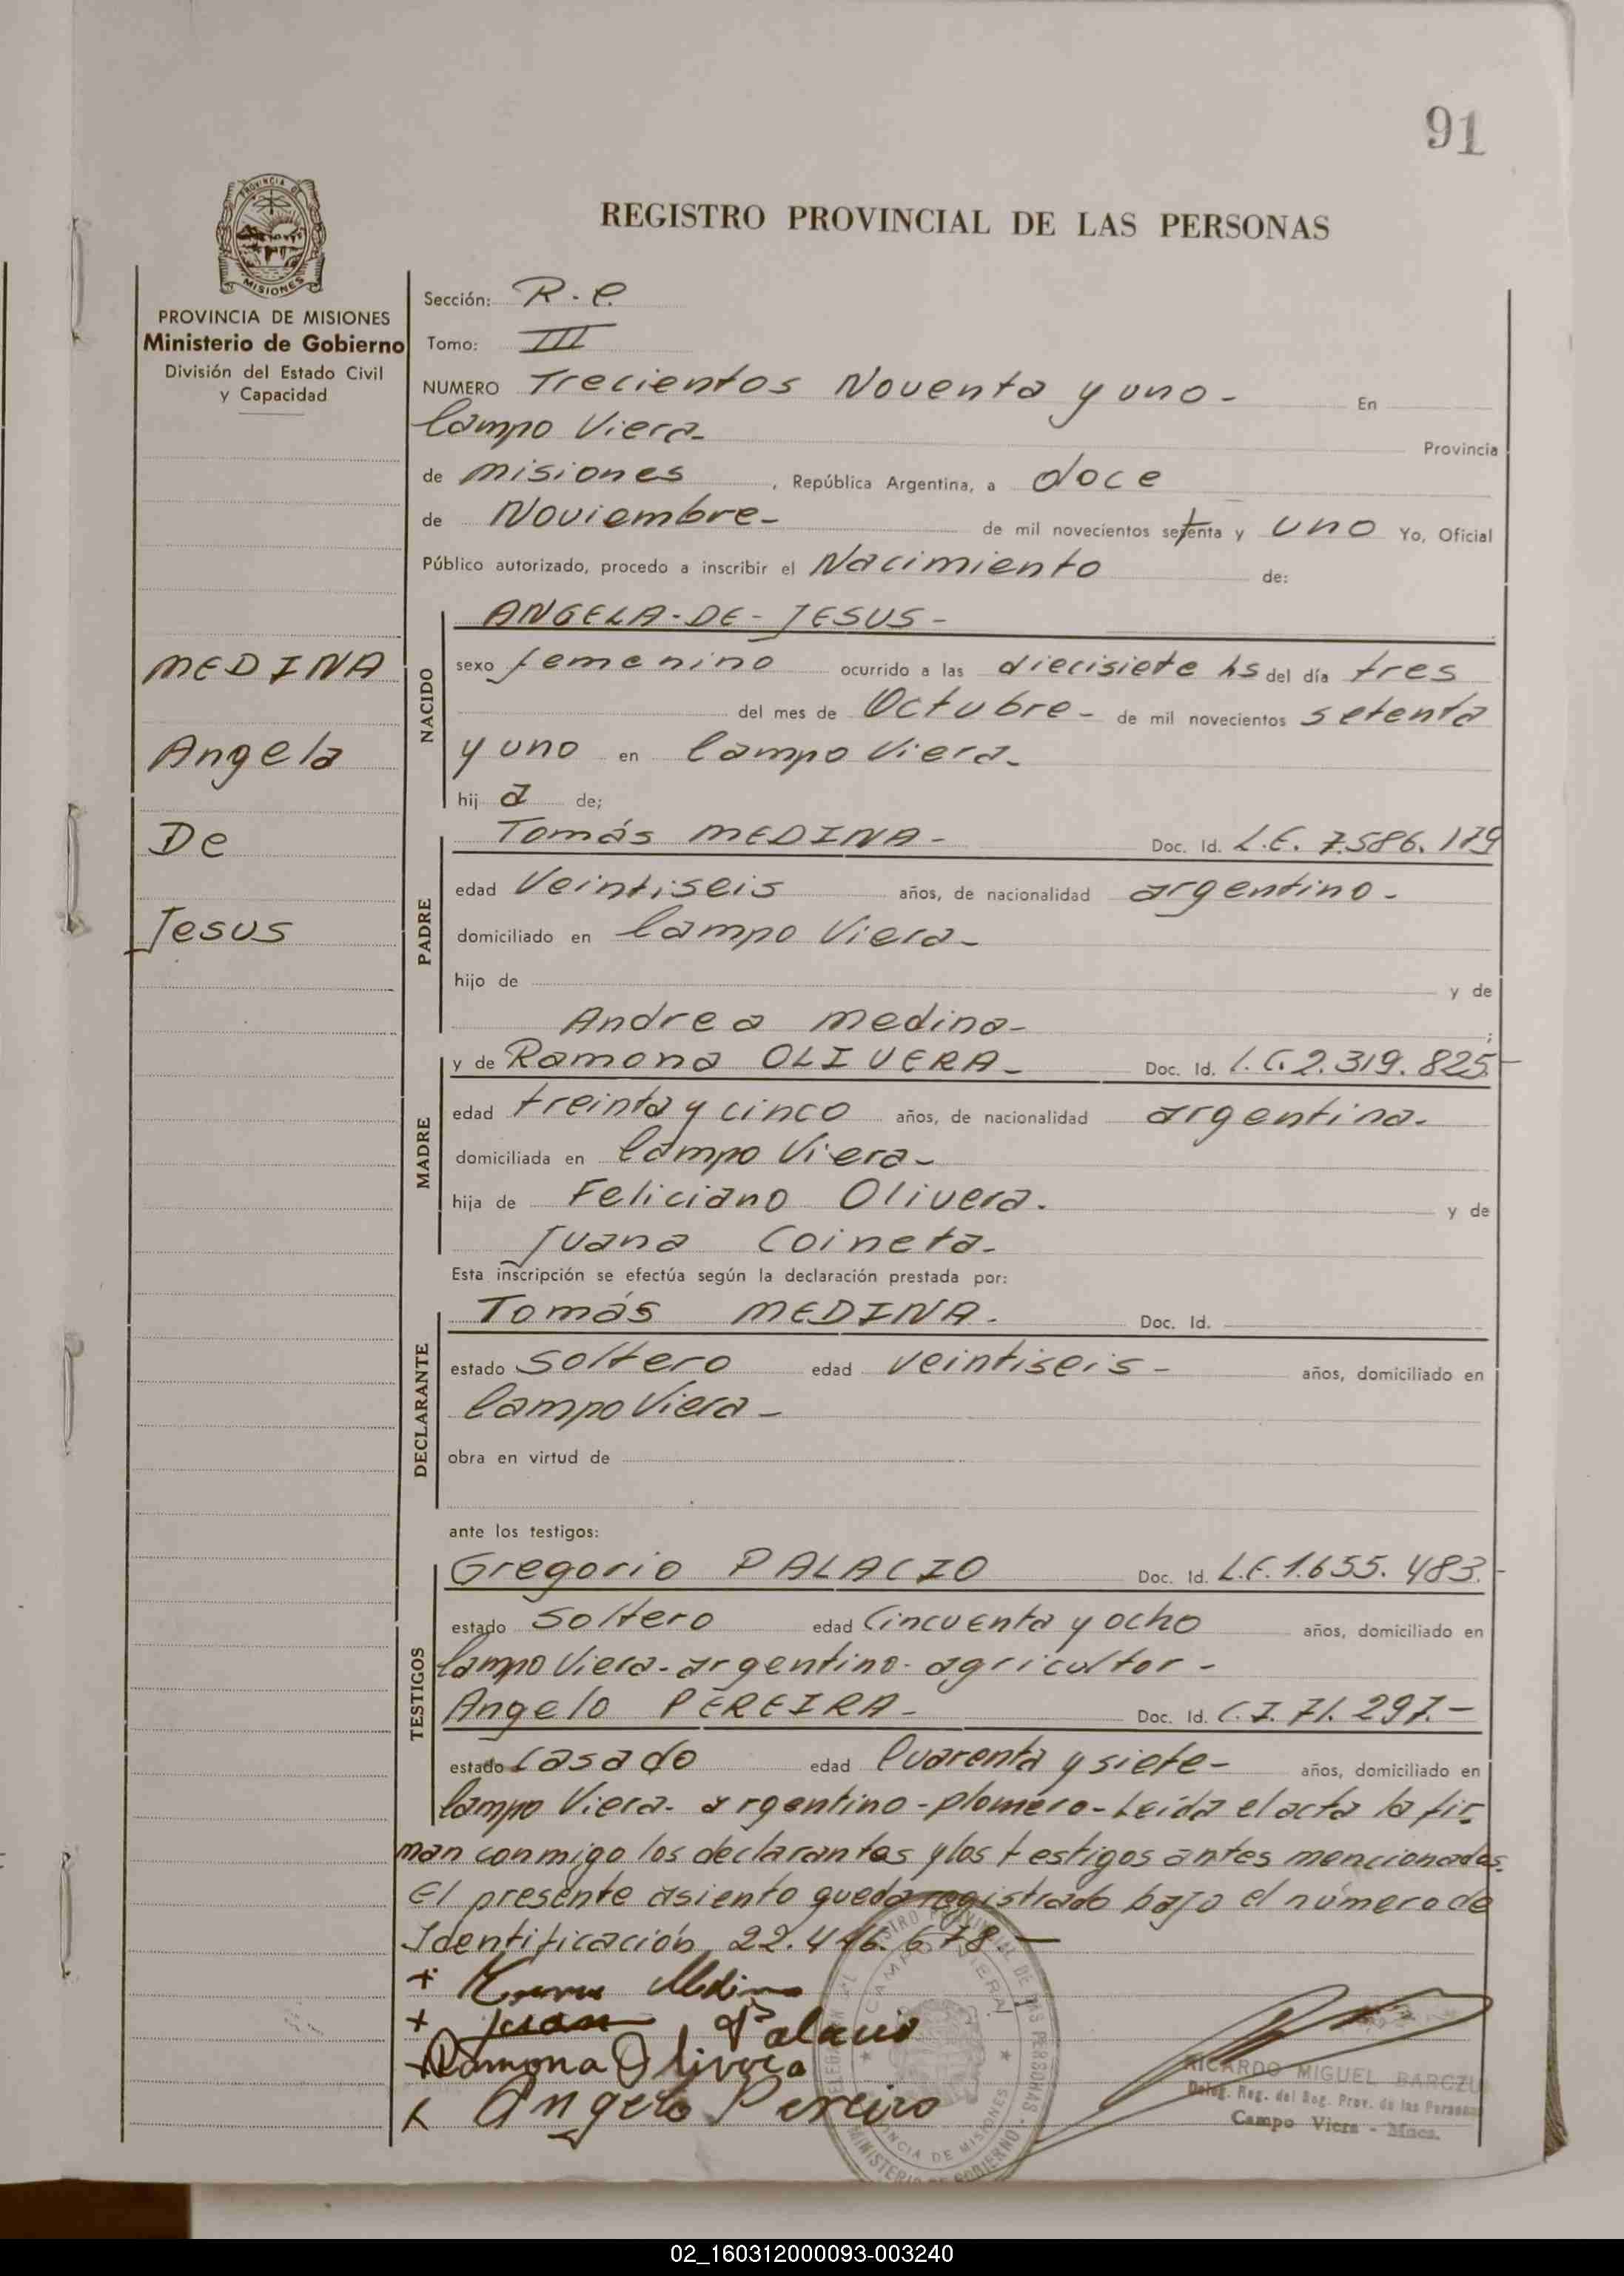 91
REGISTRO PROVINCIAL DE LAS PERSONAS
PROVINCIA DE
MISIONES
PROVINCIA DE MISIONES
Ministerio de Gobierno
División del Estado Civil
y Capacidad
MEDINA
Angela
De
Jesus
Sección: R. C.
Tomo: III
NUMERO Trecientos Noventa y uno - En
Campo Viera - Provincia
de misiones, República Argentina, a doce
de Noviembre - de mil novecientos setenta y uno Yo, Oficial
Público autorizado, procedo a inscribir el Nacimiento de:
NACIDO
ANGELA-DE-JESUS-
sexo femenino ocurrido a las diecisiete hs del día tres
del mes de Octubre - de mil novecientos setenta
y uno en Campo Viera -
hij a de;
PADRE
Tomás MEDINA - Doc. Id. L.E. 7.586.179
edad Veintiseis años, de nacionalidad argentino -
domiciliado en Campo Viera -
hijo de y de
Andrea Medina - ;
MADRE
y de Ramona OLIVERA - Doc. Id. L.C. 2.319.825 -
edad treinta y cinco años, de nacionalidad argentina.
domiciliada en Campo Viera -
hija de Feliciano Olivera. y de
Juana Coineta.
Esta inscripción se efectúa según la declaración prestada por:
DECLARANTE
Tomás MEDINA. Doc. Id.
estado Soltero edad veintiseis - años, domiciliado en
Campo Viera -
obra en virtud de
ante los testigos:
TESTIGOS
Gregorio PALACIO Doc. Id. L.E. 1.655.483. -
estado Soltero edad Cincuenta y ocho años, domiciliado en
Campo Viera - argentino - agricultor -
Angelo PEREIRA - Doc. Id. C.I. 71.297. -
estado Casado edad Cuarenta y siete - años, domiciliado en
Campo Viera - argentino - plomero - Leída el acta la fir-
man conmigo los declarantes y los testigos antes mencionados.
El presente asiento queda registrado bajo el número de
Identificación 22.446.678. -
+ Medina
+ Juan Palacio
+ Ramona Olivera
x Angelo Pereiro
CAMPO VIERA
PROVINCIA DE MISIONES
MINISTERIO DE GOBIERNO
RICARDO MIGUEL BARCZU
Deleg. Reg. del Reg. Prov. de las Personas
Campo Viera - Mnes.
02_160312000093-003240